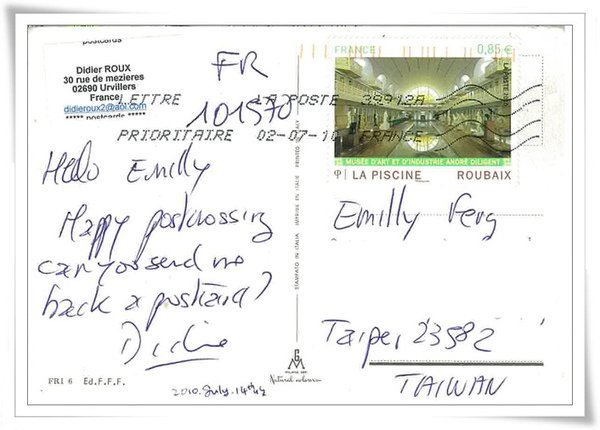 postcards
Didier ROUX
30 rue de mezieres
02690 Urvillers
France
didieroux2@aol.com
***** postcards *****
FR
101570
LETTRE LA POSTE 39912A
PRIORITAIRE 02-07-10 FRANCE
Hello Emilly
Happy postcrossing
can you send me
back a postcard?
Didier
FRANCE 0,85 €
LA POSTE
MUSÉE D'ART ET D'INDUSTRIE ANDRÉ DILIGENT
LA PISCINE ROUBAIX
Emilly Feng
Taipei 23582
TAIWAN
STAMPATO IN ITALIA IMPRIME EN ITALIE PRINTED IN ITALY
GM
Natural colour
FR1 6 Ed.F.F.F.
2010.July.14th